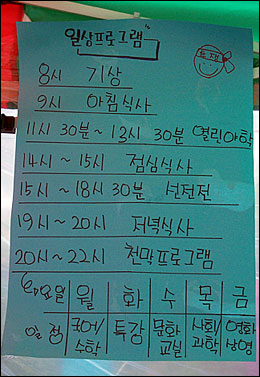 "일상프로그램"
투쟁
8시 기상
9시 아침식사
11시 30분~13시 30분 열린야학
14시~15시 점심식사
15시~18시 30분 선전전
19시~20시 저녁식사
20시~22시 천막프로그램
요일 월 화 수 목 금
일정 국어/수학 특강 문화교실 사회/과학 영화상영